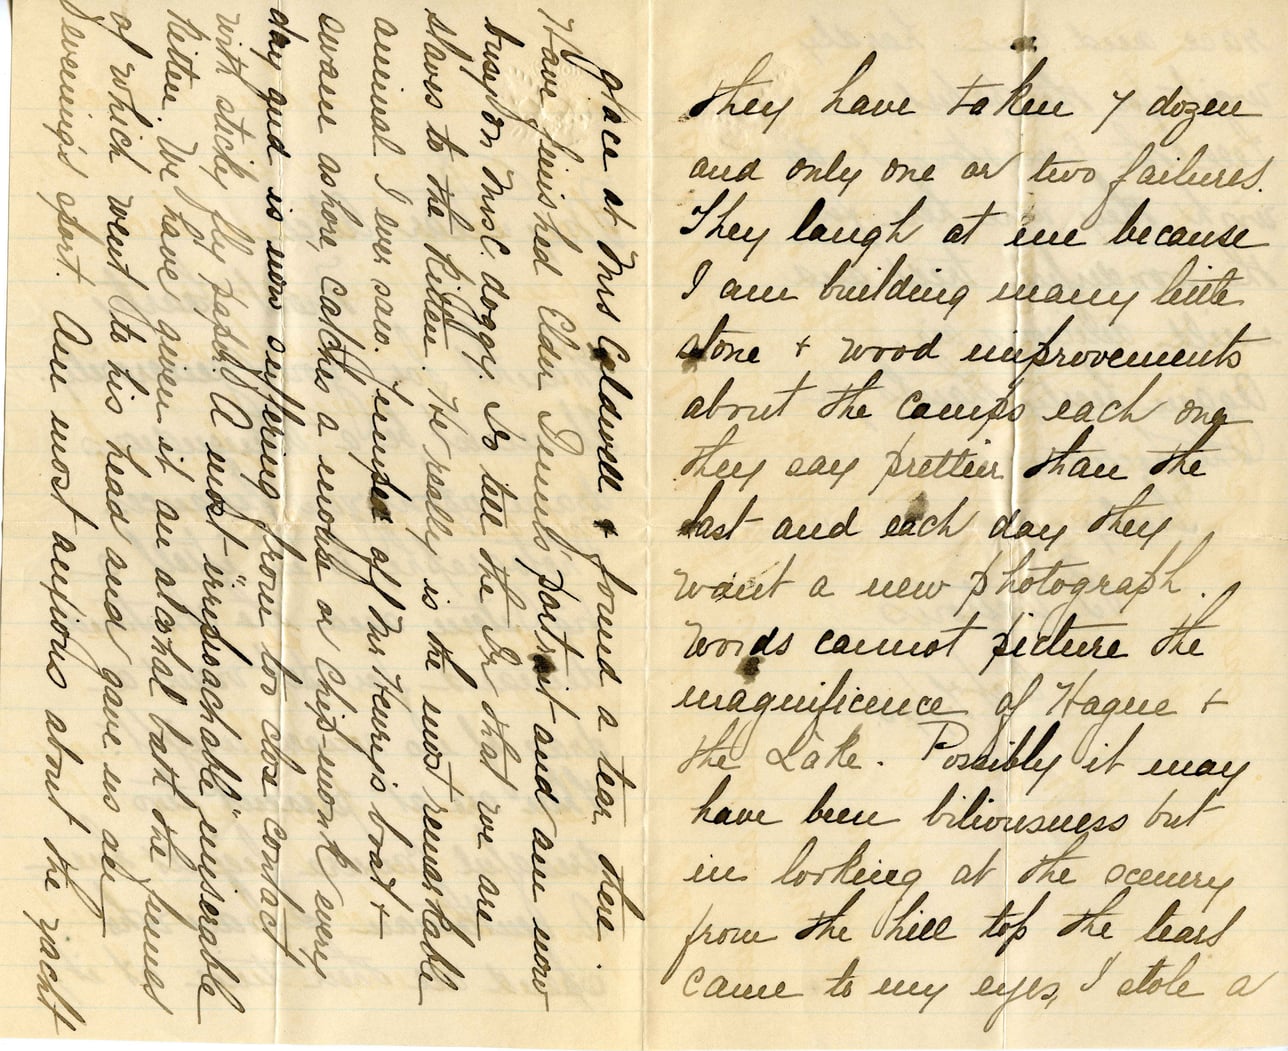 they have taken 7 dozen
and only one or two failures.
They laugh at me because
I am building many little
stone + wood improvements
about the camps each one
they say prettier than the
last and each day they
want a new photograph.
Words cannot picture the
magnificence of Hague +
the Lake. Possibly it may
have been biliousness but
in looking at the scenery
from the hill top the tears
came to my eyes, I stole a
glace at Mrs Caldwell + found a tear there.
Have finished Elder portrait and am now
busy on Mrs C. doggy. Do tell the Dr that we are
slaves to the Kitten. He really is the most remarkable
animal I ever saw. Jumped off Mr Henry's boat +
swam ashore, Catches a mouse or chip-monk every
day and is now suffering from too close contact
with sticky fly paper. A most "irreproachable" miserable
kitten. We have given it an alcohal bath the fumes
of which went to his head and gave us an
evening's sport. Am most anxious about the yacht